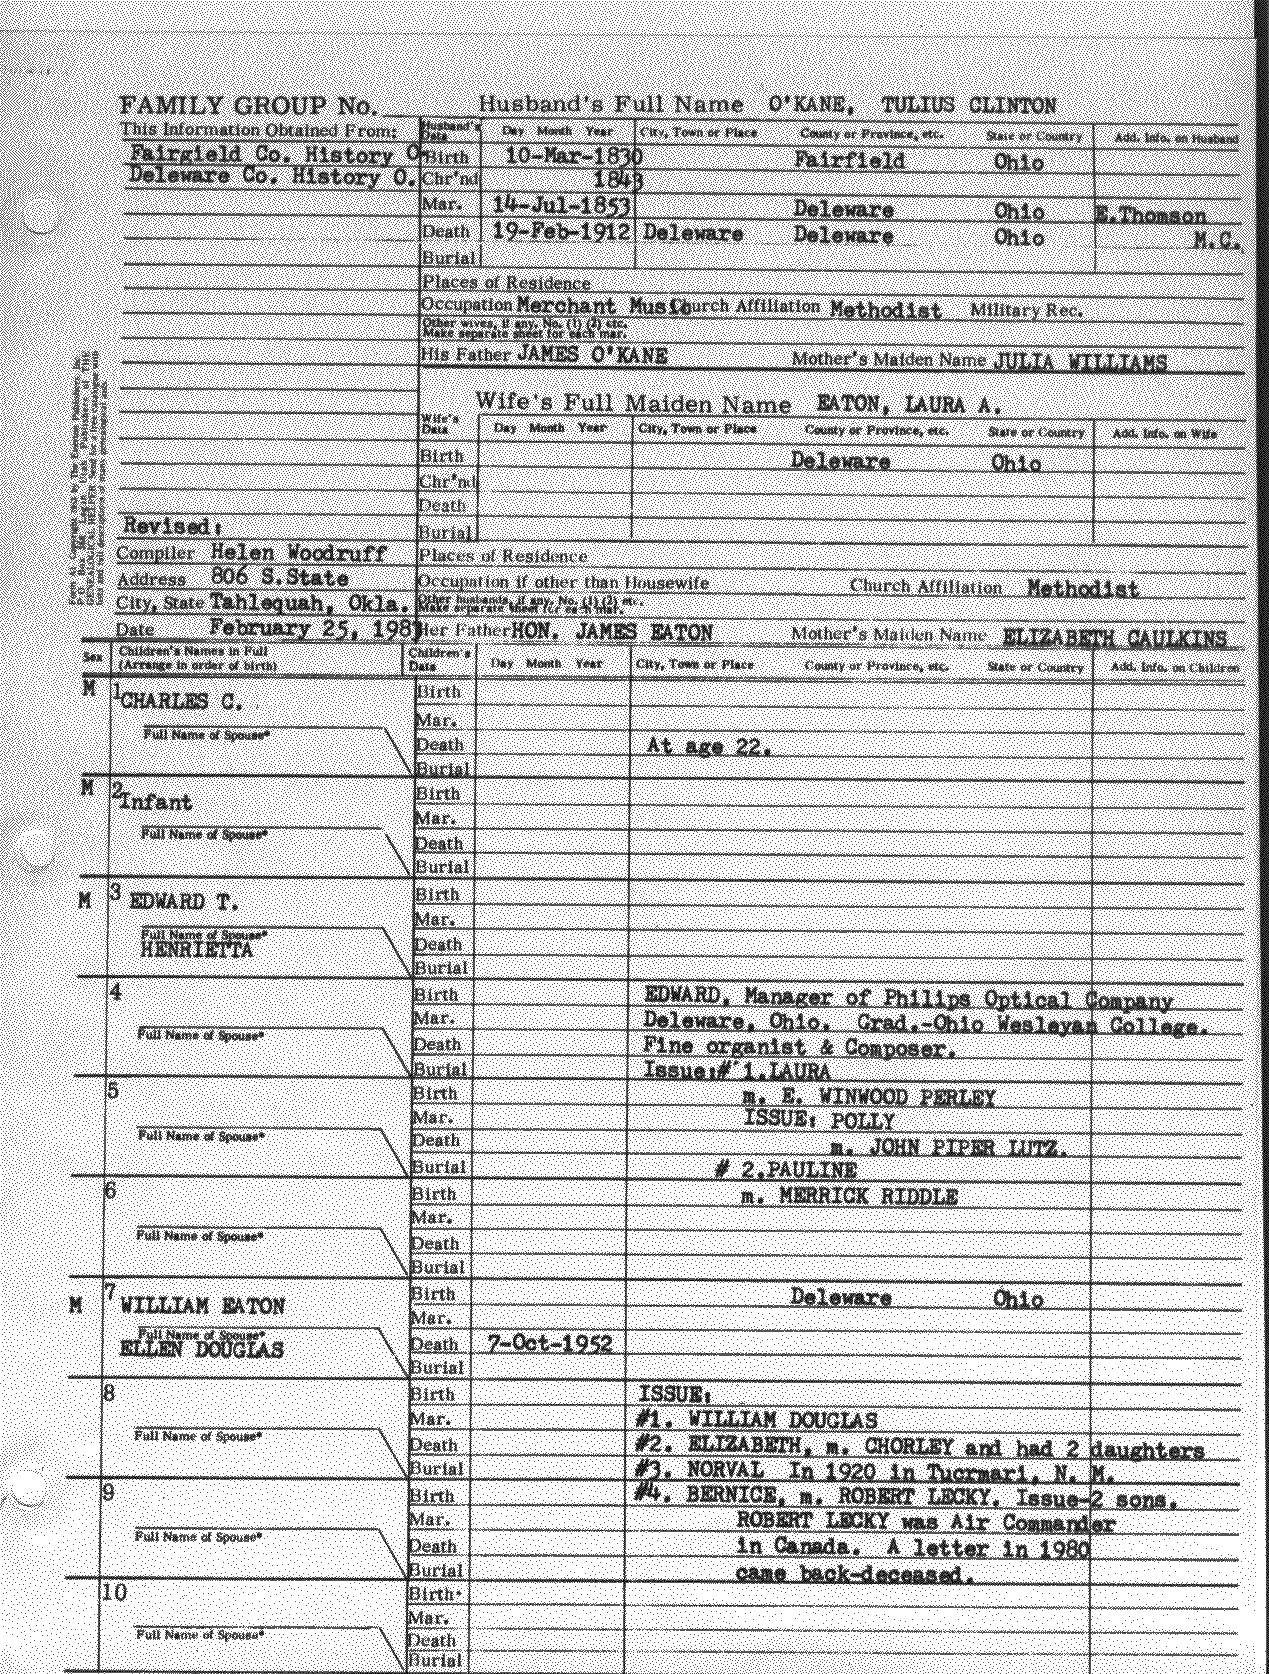 FAMILY GROUP No. Husband's Full Name O'KANE, TULIUS CLINTON
This Information Obtained From: Husband's Data Day Month Year City, Town or Place County or Province, etc. State or Country Add. Info. on Husband
Fairgield Co. History O. Birth 10-Mar-1830 Fairfield Ohio
Deleware Co. History O. Chr'nd 1843
Mar. 14-Jul-1853 Deleware Ohio E.Thomson
Death 19-Feb-1912 Deleware Deleware Ohio M.C.
Burial
Places of Residence
Occupation Merchant Music Church Affiliation Methodist Military Rec.
Other wives, if any. No. (1) (2) etc.
Make separate sheet for each mar.
His Father JAMES O'KANE Mother's Maiden Name JULIA WILLIAMS
Wife's Full Maiden Name EATON, LAURA A.
Wife's Data Day Month Year City, Town or Place County or Province, etc. State or Country Add. Info. on Wife
Birth Deleware Ohio
Chr'nd
Death
Revised: Burial
Compiler Helen Woodruff Places of Residence
Address 806 S.State Occupation if other than Housewife Church Affiliation Methodist
City, State Tahlequah, Okla. Other husbands, if any. No. (1) (2) etc.
Make separate sheet for each mar.
Date February 25, 1983 Her Father HON. JAMES EATON Mother's Maiden Name ELIZABETH CAULKINS
Sex Children's Names in Full (Arrange in order of birth) Children's Data Day Month Year City, Town or Place County or Province, etc. State or Country Add. Info. on Children
M 1 CHARLES C. Birth
Mar.
Full Name of Spouse* Death At age 22.
Burial
M 2 Infant Birth
Mar.
Full Name of Spouse* Death
Burial
M 3 EDWARD T. Birth
Mar.
Full Name of Spouse* Death
HENRIETTA Burial
4 Birth EDWARD, Manager of Philips Optical Company
Mar. Deleware, Ohio. Grad.-Ohio Wesleyan College.
Full Name of Spouse* Death Fine organist & Composer.
Burial Issue:# 1.LAURA
5 Birth m. E. WINWOOD PERLEY
Mar. ISSUE: POLLY
Full Name of Spouse* Death m. JOHN PIPER LUTZ.
Burial # 2.PAULINE
6 Birth m. MERRICK RIDDLE
Mar.
Full Name of Spouse* Death
Burial
M 7 WILLIAM EATON Birth Deleware Ohio
Mar.
Full Name of Spouse* Death 7-Oct-1952
ELLEN DOUGLAS Burial
8 Birth ISSUE:
Mar. #1. WILLIAM DOUGLAS
Full Name of Spouse* Death #2. ELIZABETH, m. CHORLEY and had 2 daughters
Burial #3. NORVAL In 1920 in Tucrmari, N. M.
9 Birth #4. BERNICE, m. ROBERT LECKY, Issue-2 sons.
Mar. ROBERT LECKY was Air Commander
Full Name of Spouse* Death in Canada. A letter in 1980
Burial came back-deceased.
10 Birth
Mar.
Full Name of Spouse* Death
Burial